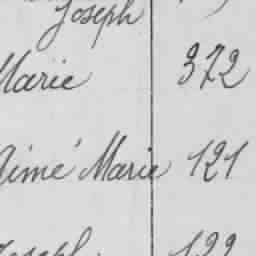 Joseph
Marie 372
Aimé Marie 121
Joseph 122